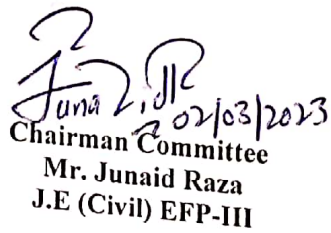 02/03/2023
Chairman Committee
Mr. Junaid Raza
J.E (Civil) EFP-III